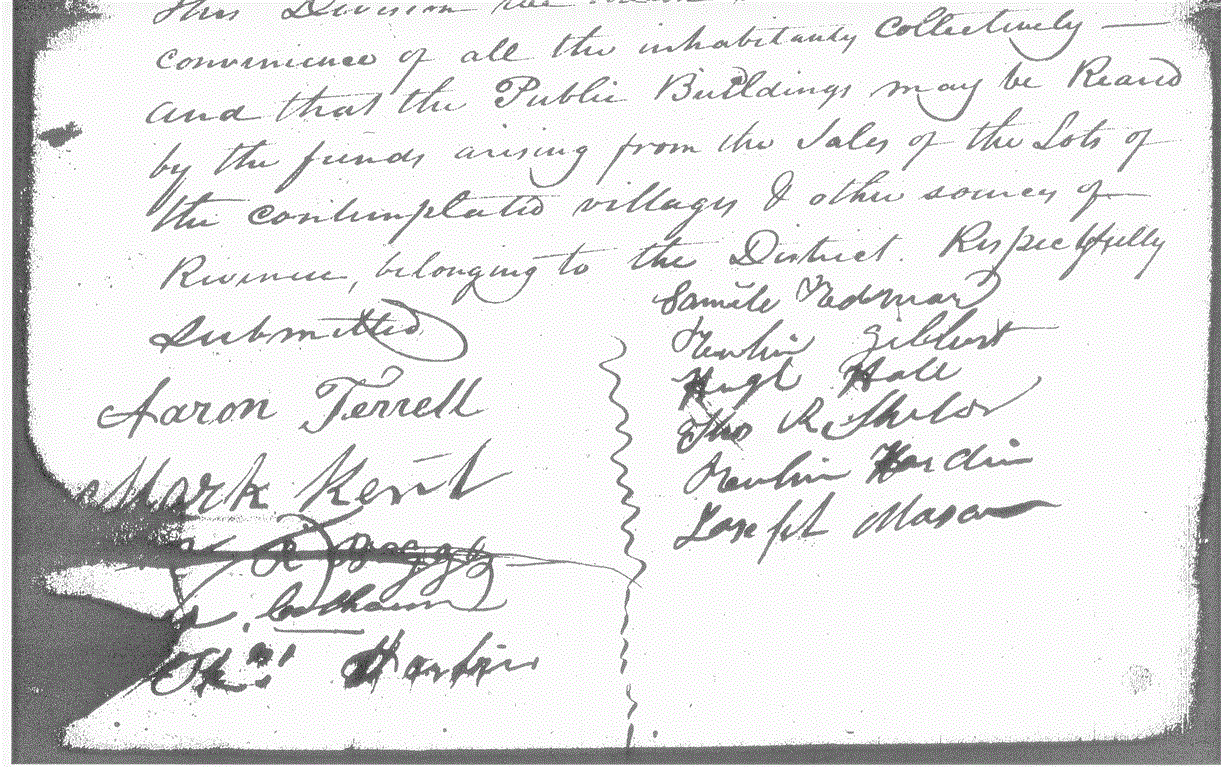 this Division
convenience of all the inhabitants collectively —
and that the Public Buildings may be Reard
by the funds arising from the Sales of the Lots of
the contemplated villages & other sources of
Revenue, belonging to the District. Respectfully
Submitted
Aaron Terrell
Mark Kent
R Boggs
Calhoun
Thos Harbin
Gilbert
Hugh Hall
Thos R Shelor
Hardin
Joseph Mason